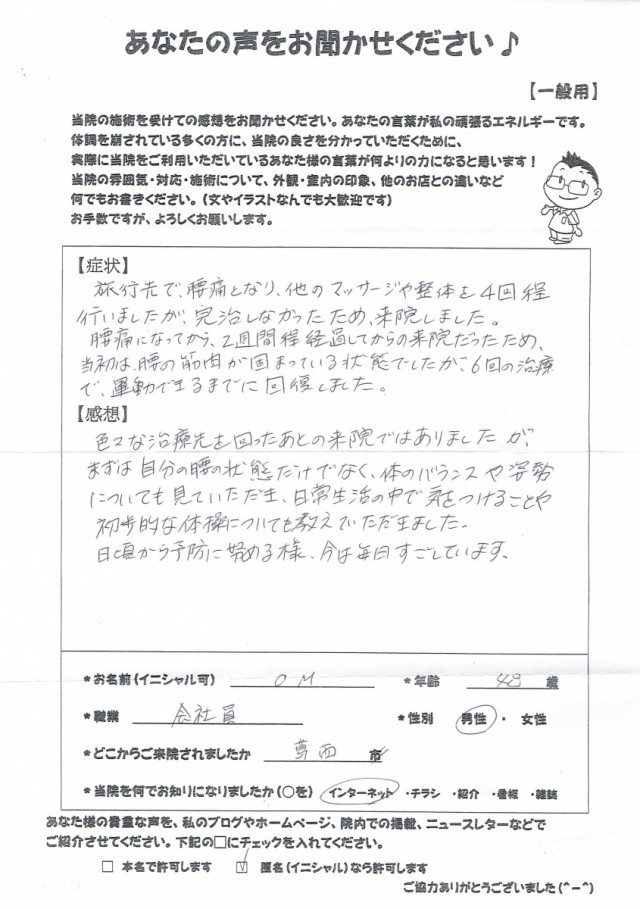 あなたの声をお聞かせください♪
【一般用】
当院の施術を受けての感想をお聞かせください。あなたの言葉が私の頑張るエネルギーです。
体調を崩されている多くの方に、当院の良さを分かっていただくために、
実際に当院をご利用いただいているあなた様の言葉が何よりの力になると思います！
当院の雰囲気・対応・施術について、外観・室内の印象、他のお店との違いなど
何でもお書きください。（文やイラストなんでも大歓迎です）
お手数ですが、よろしくお願いします。
【症状】
旅行先で、腰痛となり、他のマッサージや整体を4回程
行いましたが、完治しなかったため、来院しました。
腰痛になってから、2週間程経過してからの来院だったため、
当初は、腰の筋肉が固まっている状態でしたが、6回の治療
で、運動できるまでに回復しました。
【感想】
色々な治療先を回ったあとの来院ではありましたが、
まずは自分の腰の状態だけでなく、体のバランスや姿勢
についても見ていただき、日常生活の中で気をつけることや
初歩的な体操についても教えていただきました。
日頃から予防に努める様、今は毎日すごしています。
*お名前（イニシャル可） O M *年齢 49 歳
*職業 会社員 *性別 男性 ・ 女性
*どこからご来院されましたか 市
*当院を何でお知りになりましたか（○を） インターネット ・チラシ ・紹介 ・看板 ・雑誌
あなた様の貴重な声を、私のブログやホームページ、院内での掲載、ニュースレターなどで
ご紹介させてください。下記の□にチェックを入れてください。
□ 本名で許可します ☑ 匿名（イニシャル）なら許可します
ご協力ありがとうございました（^－^）